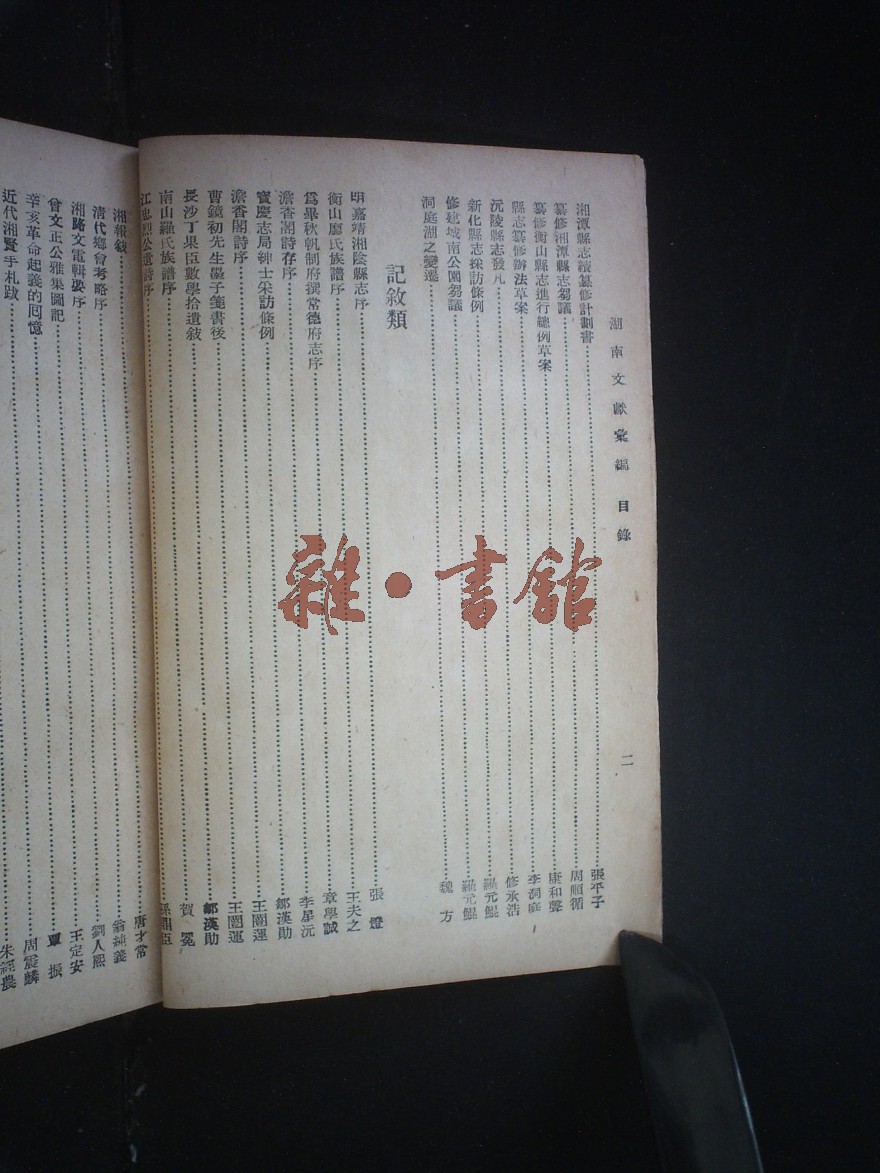 湖南文獻彙編 目錄 二
湘潭縣志續纂修計劃書 張平子
纂修湘潭縣志芻議 周順循
纂修衡山縣志進行總例草案 康和聲
縣志纂修辦法草案 李洞庭
沅陵縣志發凡 修承浩
新化縣志採訪條例 羅元鯤
修建城南公園芻議 羅元鯤
洞庭湖之變遷 魏方
記敘類
明嘉靖湘陰縣志序 張燈
衡山廖氏族譜序 王夫之
爲畢秋帆制府撰常德府志序 章學誠
澹香閣詩存序 李星沅
寶慶志局紳士采訪條例 鄒漢勛
澹香閣詩序 王闓運
曹鏡初先生墨子箋書後 王闓運
長沙丁果臣數學拾遺敍 鄒漢勛
南山羅氏族譜序 賀
江忠烈公遺詩序 孫鼎臣
湘報敍 唐才常
清代鄉會考略序 翁純義
湘路文電輯要序 劉人熙
曾文正公雅集圖記 王定安
辛亥革命起義的囘憶 覃振
近代湘賢手札跋 周震鱗
朱經農
雜·書館